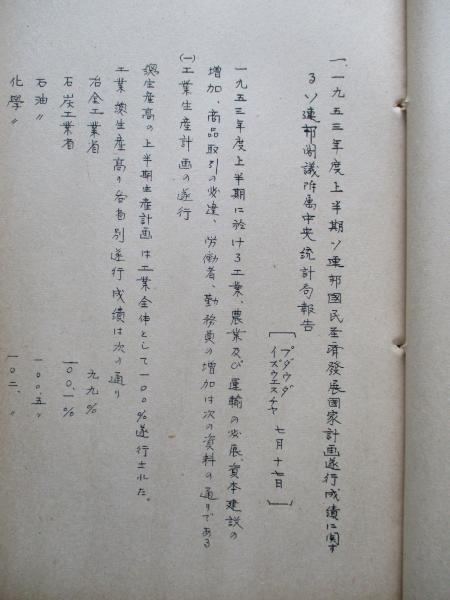 一、一九五三年度上半期ソ連邦國民圣済發展国家計画遂行成績に関す
るソ連邦閣議附属中央統計局報告
プラウダ
イズウエスチヤ 七月十七日
一九五三年度上半期に於ける工業、農業及び運輸の発展、資本建設の
増加、商品取引の発達、労働者、勤務員の増加は次の資料の通りである
(一)工業生産計画の遂行
総生産高の上半期生産計画は工業全体として一〇〇%遂行された。
工業総生産高の各省別遂行成績は次の通り
冶金工業省 九九%
石炭工業省 一〇〇、一%
石油〃 一〇〇、五〃
化學〃 一〇二、〃